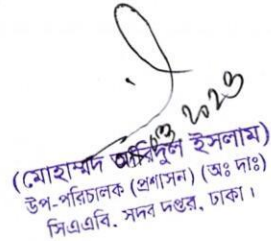 ২০২৩
(মোহাম্মদ আরিদুল ইসলাম)
উপ-পরিচালক (প্রশাসন) (অঃ দাঃ)
সিএএবি, সদর দপ্তর, ঢাকা।